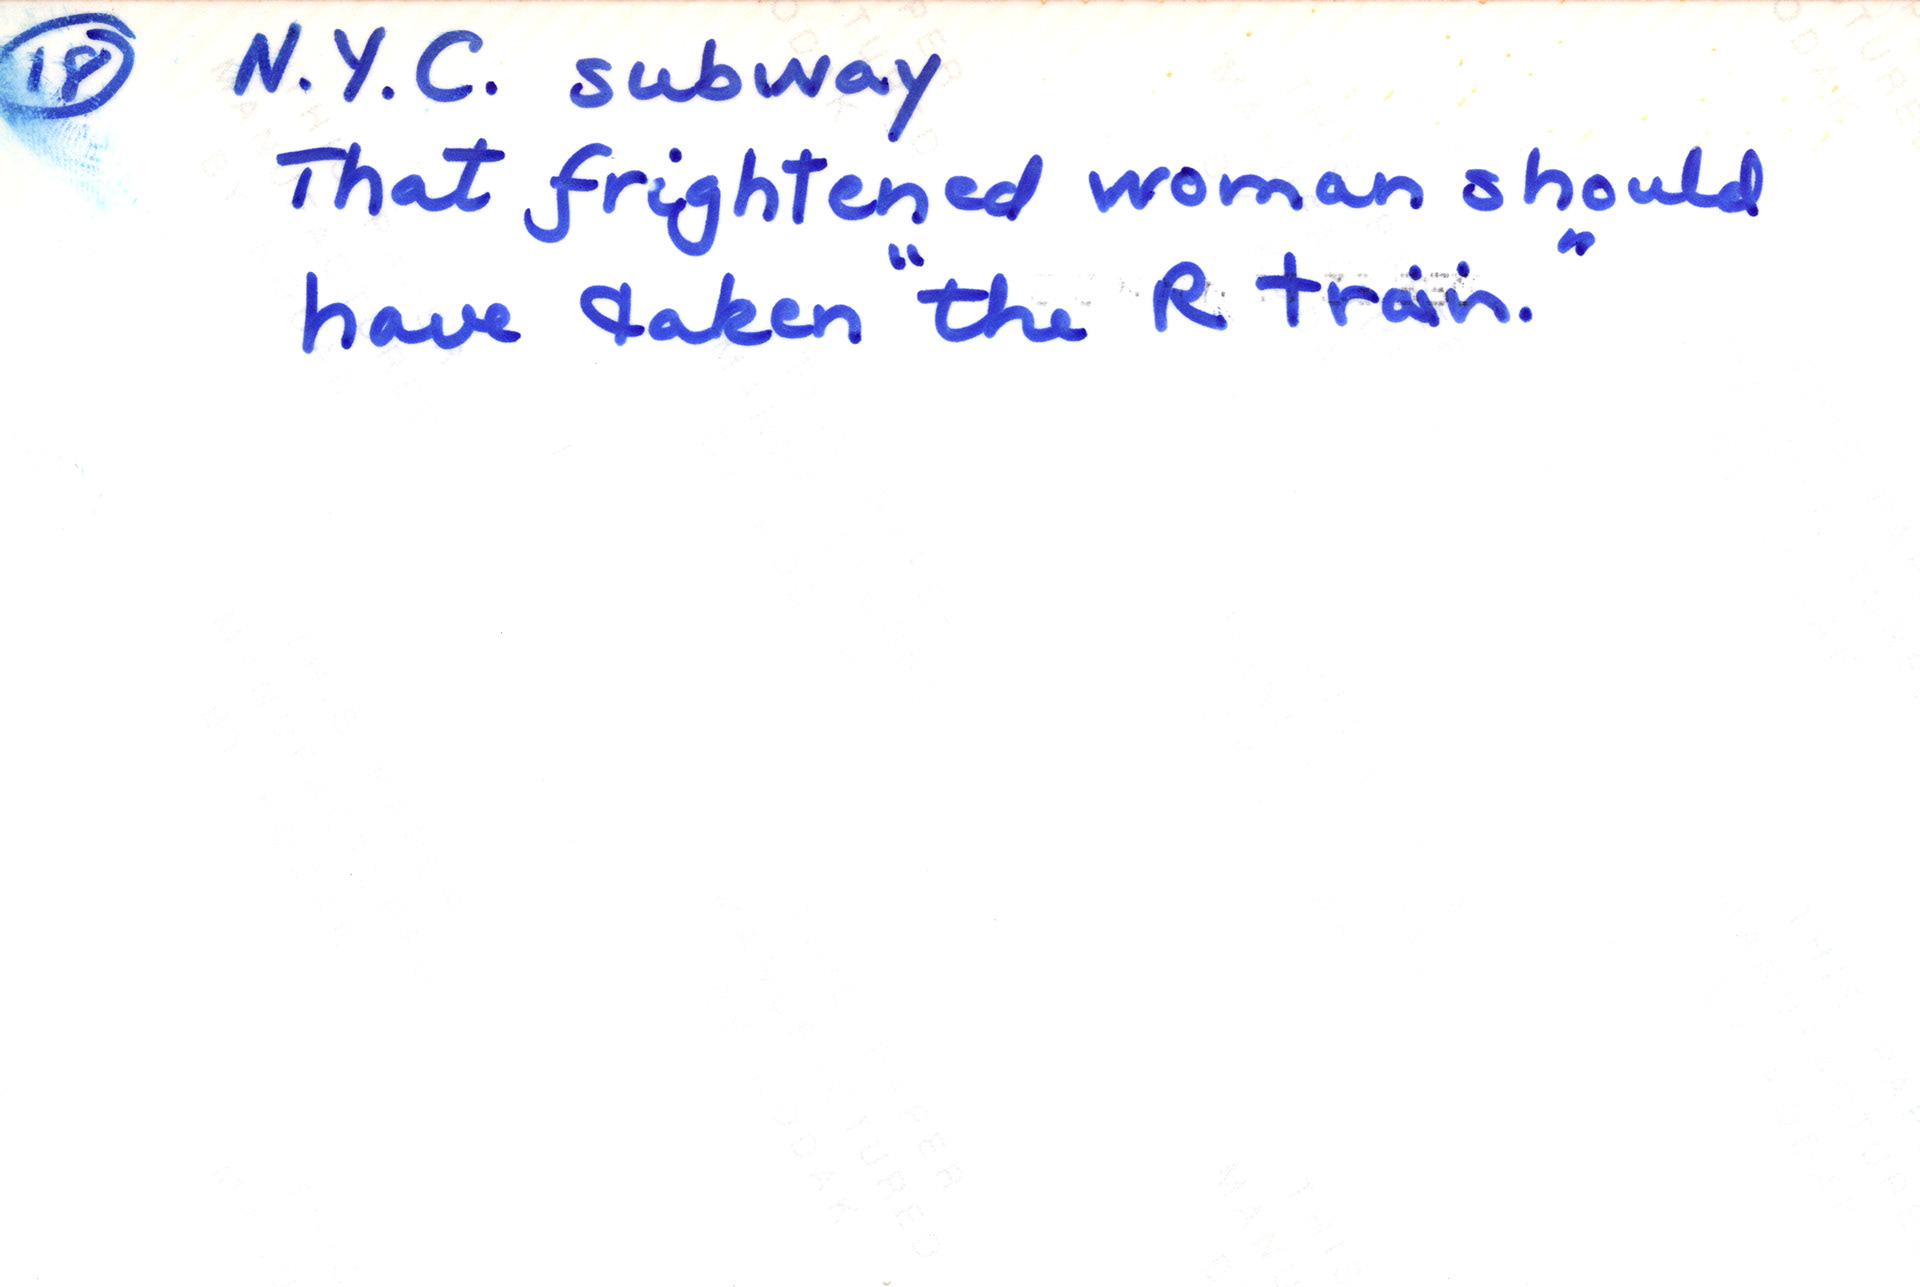 18 N.Y.C. subway
That frightened woman should
have taken "the R train."